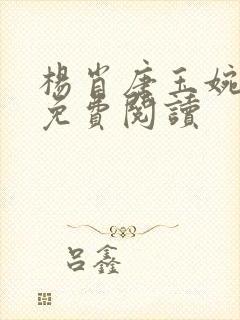 楊肖唐玉婉
免費閱讀
呂鑫